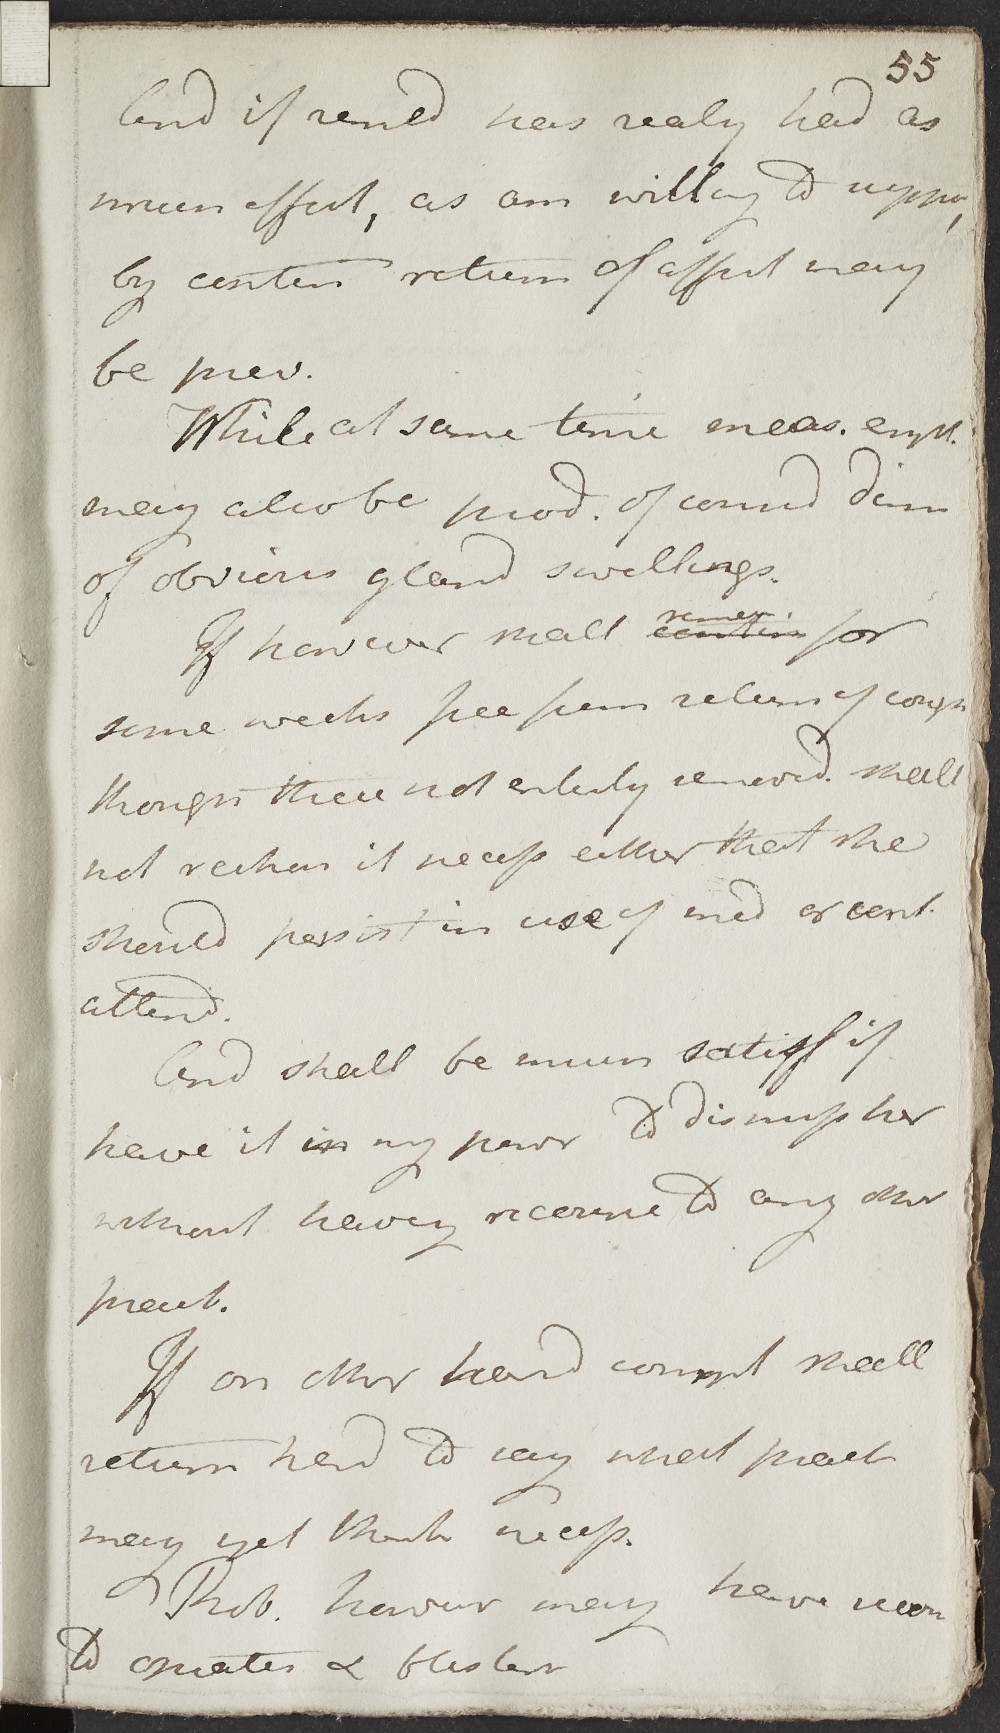 55
And if remed has realy had as
much effect, as am willing to suppose,
by contin return of affect may
be prev.
While at same time meas. emp.
may also be prod. of consid dim
of obvious gland swellings.
If however shall remain for
some weeks free from return of cough
though these not entirely remov'd. shall
not reckon it necess either that she
should persist in use of med or cont.
attend.
And shall be much satisf if
have it in my power to dismiss her
without having recourse to any other
pract.
If on other hand compl shall
return hard to say what pract
may yet think necess.
Prob. however may have recou
to opiates & blisters